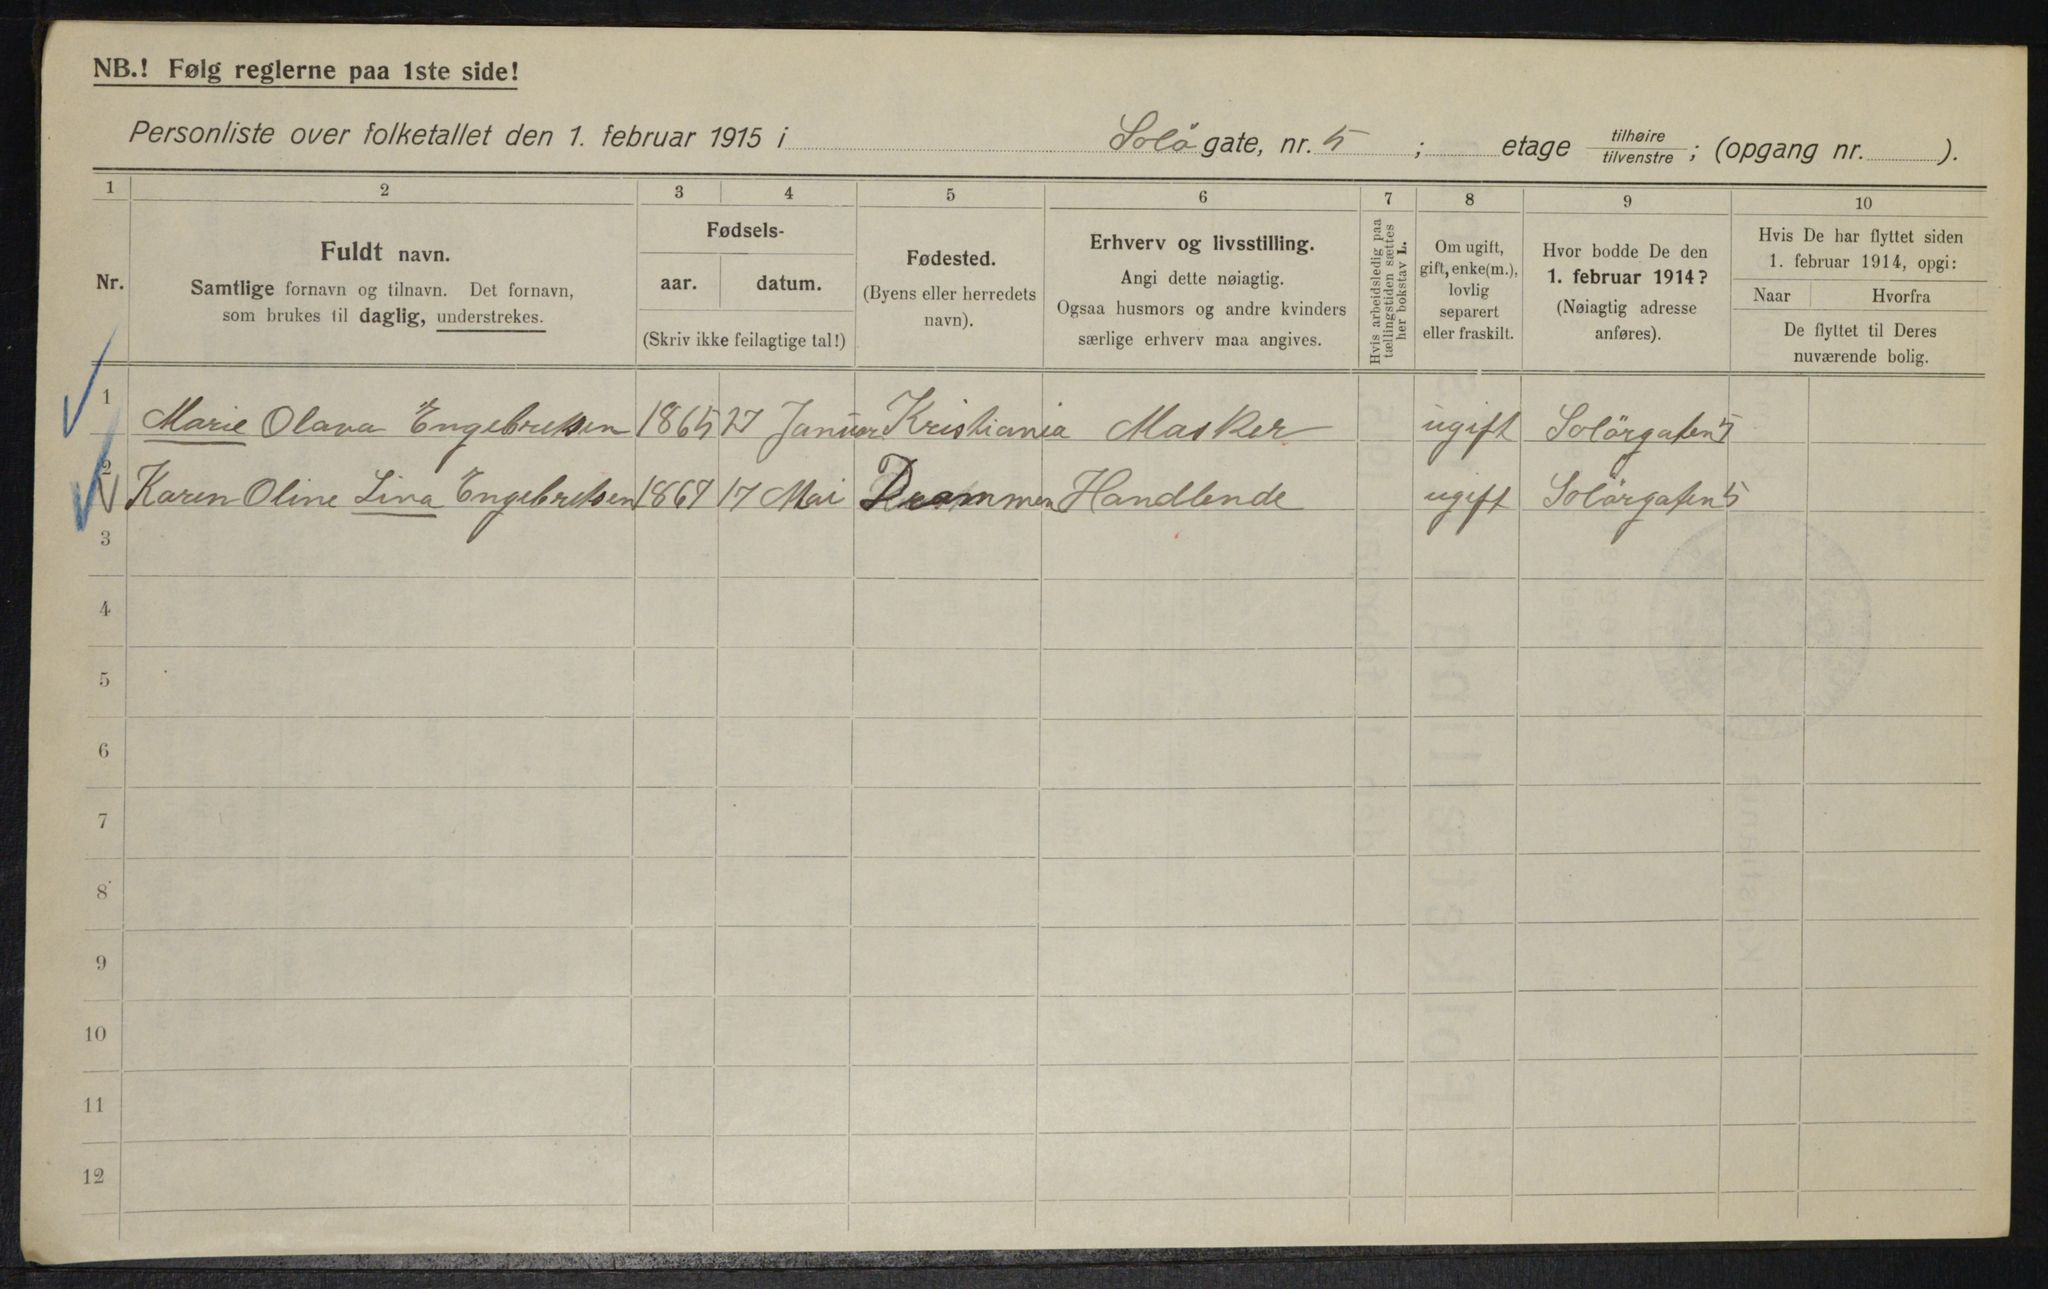 NB.! Følg reglerne paa 1ste side!
Personliste over folketallet den 1. februar 1915 i Solö gate, nr. 5 ; etage tilhøire / tilvenstre ; (opgang nr. ).
1 2 3 4 5 6 7 8 9 10
Nr.
Fuldt navn.
Samtlige fornavn og tilnavn. Det fornavn,
som brukes til daglig, understrekes.
Fødsels-
aar. datum.
(Skriv ikke feilagtige tal!)
Fødested.
(Byens eller herredets
navn).
Erhverv og livsstilling.
Angi dette nøiagtig.
Ogsaa husmors og andre kvinders
særlige erhverv maa angives.
Hvis arbeidsledig paa
tællingstiden sættes
her bokstav L.
Om ugift,
gift, enke(m.),
lovlig
separert
eller fraskilt.
Hvor bodde De den
1. februar 1914?
(Nøiagtig adresse
anføres).
Hvis De har flyttet siden
1. februar 1914, opgi:
Naar Hvorfra
De flyttet til Deres
nuværende bolig.
1 Marie Olava Engebretsen 1865 27 Januar Kristiania Masker ugift Solörgaten 5
2 Karen Oline Lina Engebretsen 1867 17 Mai Drammen Handlende ugift Solörgaten 5
3
4
5
6
7
8
9
10
11
12